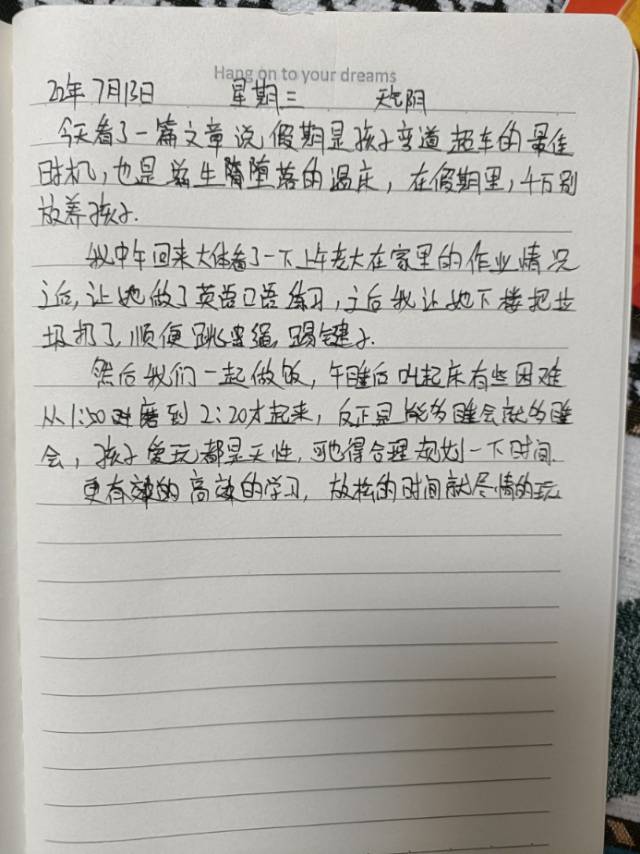 Hang on to your dreams
22年7月13日 星期三 天气阴
今天看了一篇文章说假期是孩子弯道超车的最佳
时机,也是滋生堕落的温床,在假期里,千万别
放养孩子.
我中午回来大体看了一下上午老大在家里的作业情况
之后,让她做了英语口语练习,之后我让她下楼把垃
圾扔了,顺便跳跳绳,踢毽子.
然后我们一起做饭,午睡后叫起床有些困难
从1:50磨到2:20才起来,反正是能多睡会就多睡
会,孩子爱玩都是天性,可也得合理规划一下时间.
更有效的高效的学习,放松的时间就尽情的玩